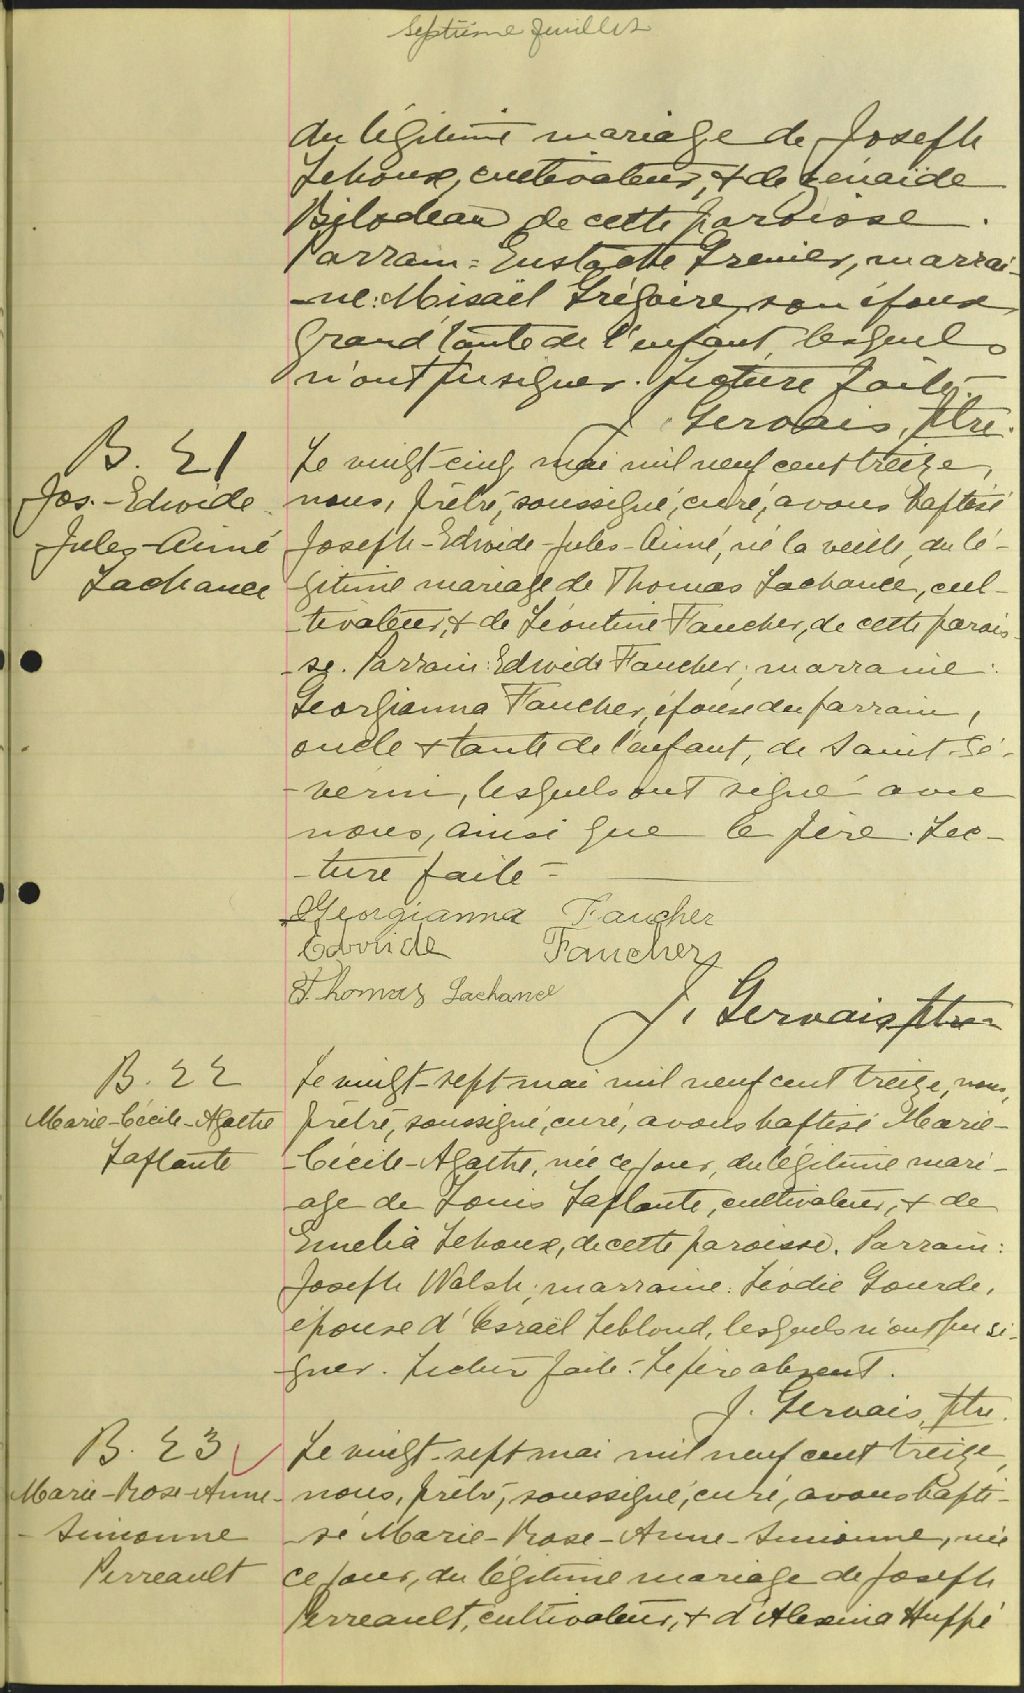 Septième feuillet
du légitime mariage de Joseph
Lehoux, cultivateur, & de Zénaïde
Bilodeau de cette paroisse.
Parrain: Eustache Grenier, marrai-
-ne: Misaël Grégoire, son épouse,
grand'tante de l'enfant, lesquels
n'ont pu signer. Lecture faite.
J. Gervais, ptre.
B. 21
Jos.-Edwide
Jules-Aimé
Lachance
Le vingt-cinq mai mil neuf cent treize,
nous, prêtre, soussigné, curé, avons baptisé
Joseph-Edwide-Jules-Aimé, né la veille, du lé-
-gitime mariage de Thomas Lachance, cul-
-tivateur, & de Léontine Faucher, de cette parois-
-se. Parrain: Edwide Faucher; marraine:
Georgianna Faucher, épouse du parrain,
oncle & tante de l'enfant, de Saint-Sé-
-vérin, lesquels ont signé avec
nous, ainsi que le père. Lec-
-ture faite -
Georgianna Faucher
Edwide Faucher
Thomas Lachance
J. Gervais ptre
B. 22
Marie-Cécile-Agathe
Laplante
Le vingt-sept mai mil neuf cent treize, nous,
prêtre, soussigné, curé, avons baptisé Marie-
-Cécile-Agathe, née ce jour, du légitime mari-
-age de Louis Laplante, cultivateur, & de
Emelia Lehoux, de cette paroisse. Parrain:
Joseph Walsh; marraine: Léodie Gourde,
épouse d'Israël Leblond, lesquels n'ont pu si-
-gner. Lecture faite. Le père absent.
J. Gervais, ptre.
B. 23
Marie-Rose-Anne-
-Simonne
Perreault
Le vingt-sept mai mil neuf cent treize,
nous, prêtre, soussigné, curé, avons bapti-
-sé Marie-Rose-Anne-Simonne, née
ce jour, du légitime mariage de Joseph
Perreault, cultivateur, & d'Alexina Huppé